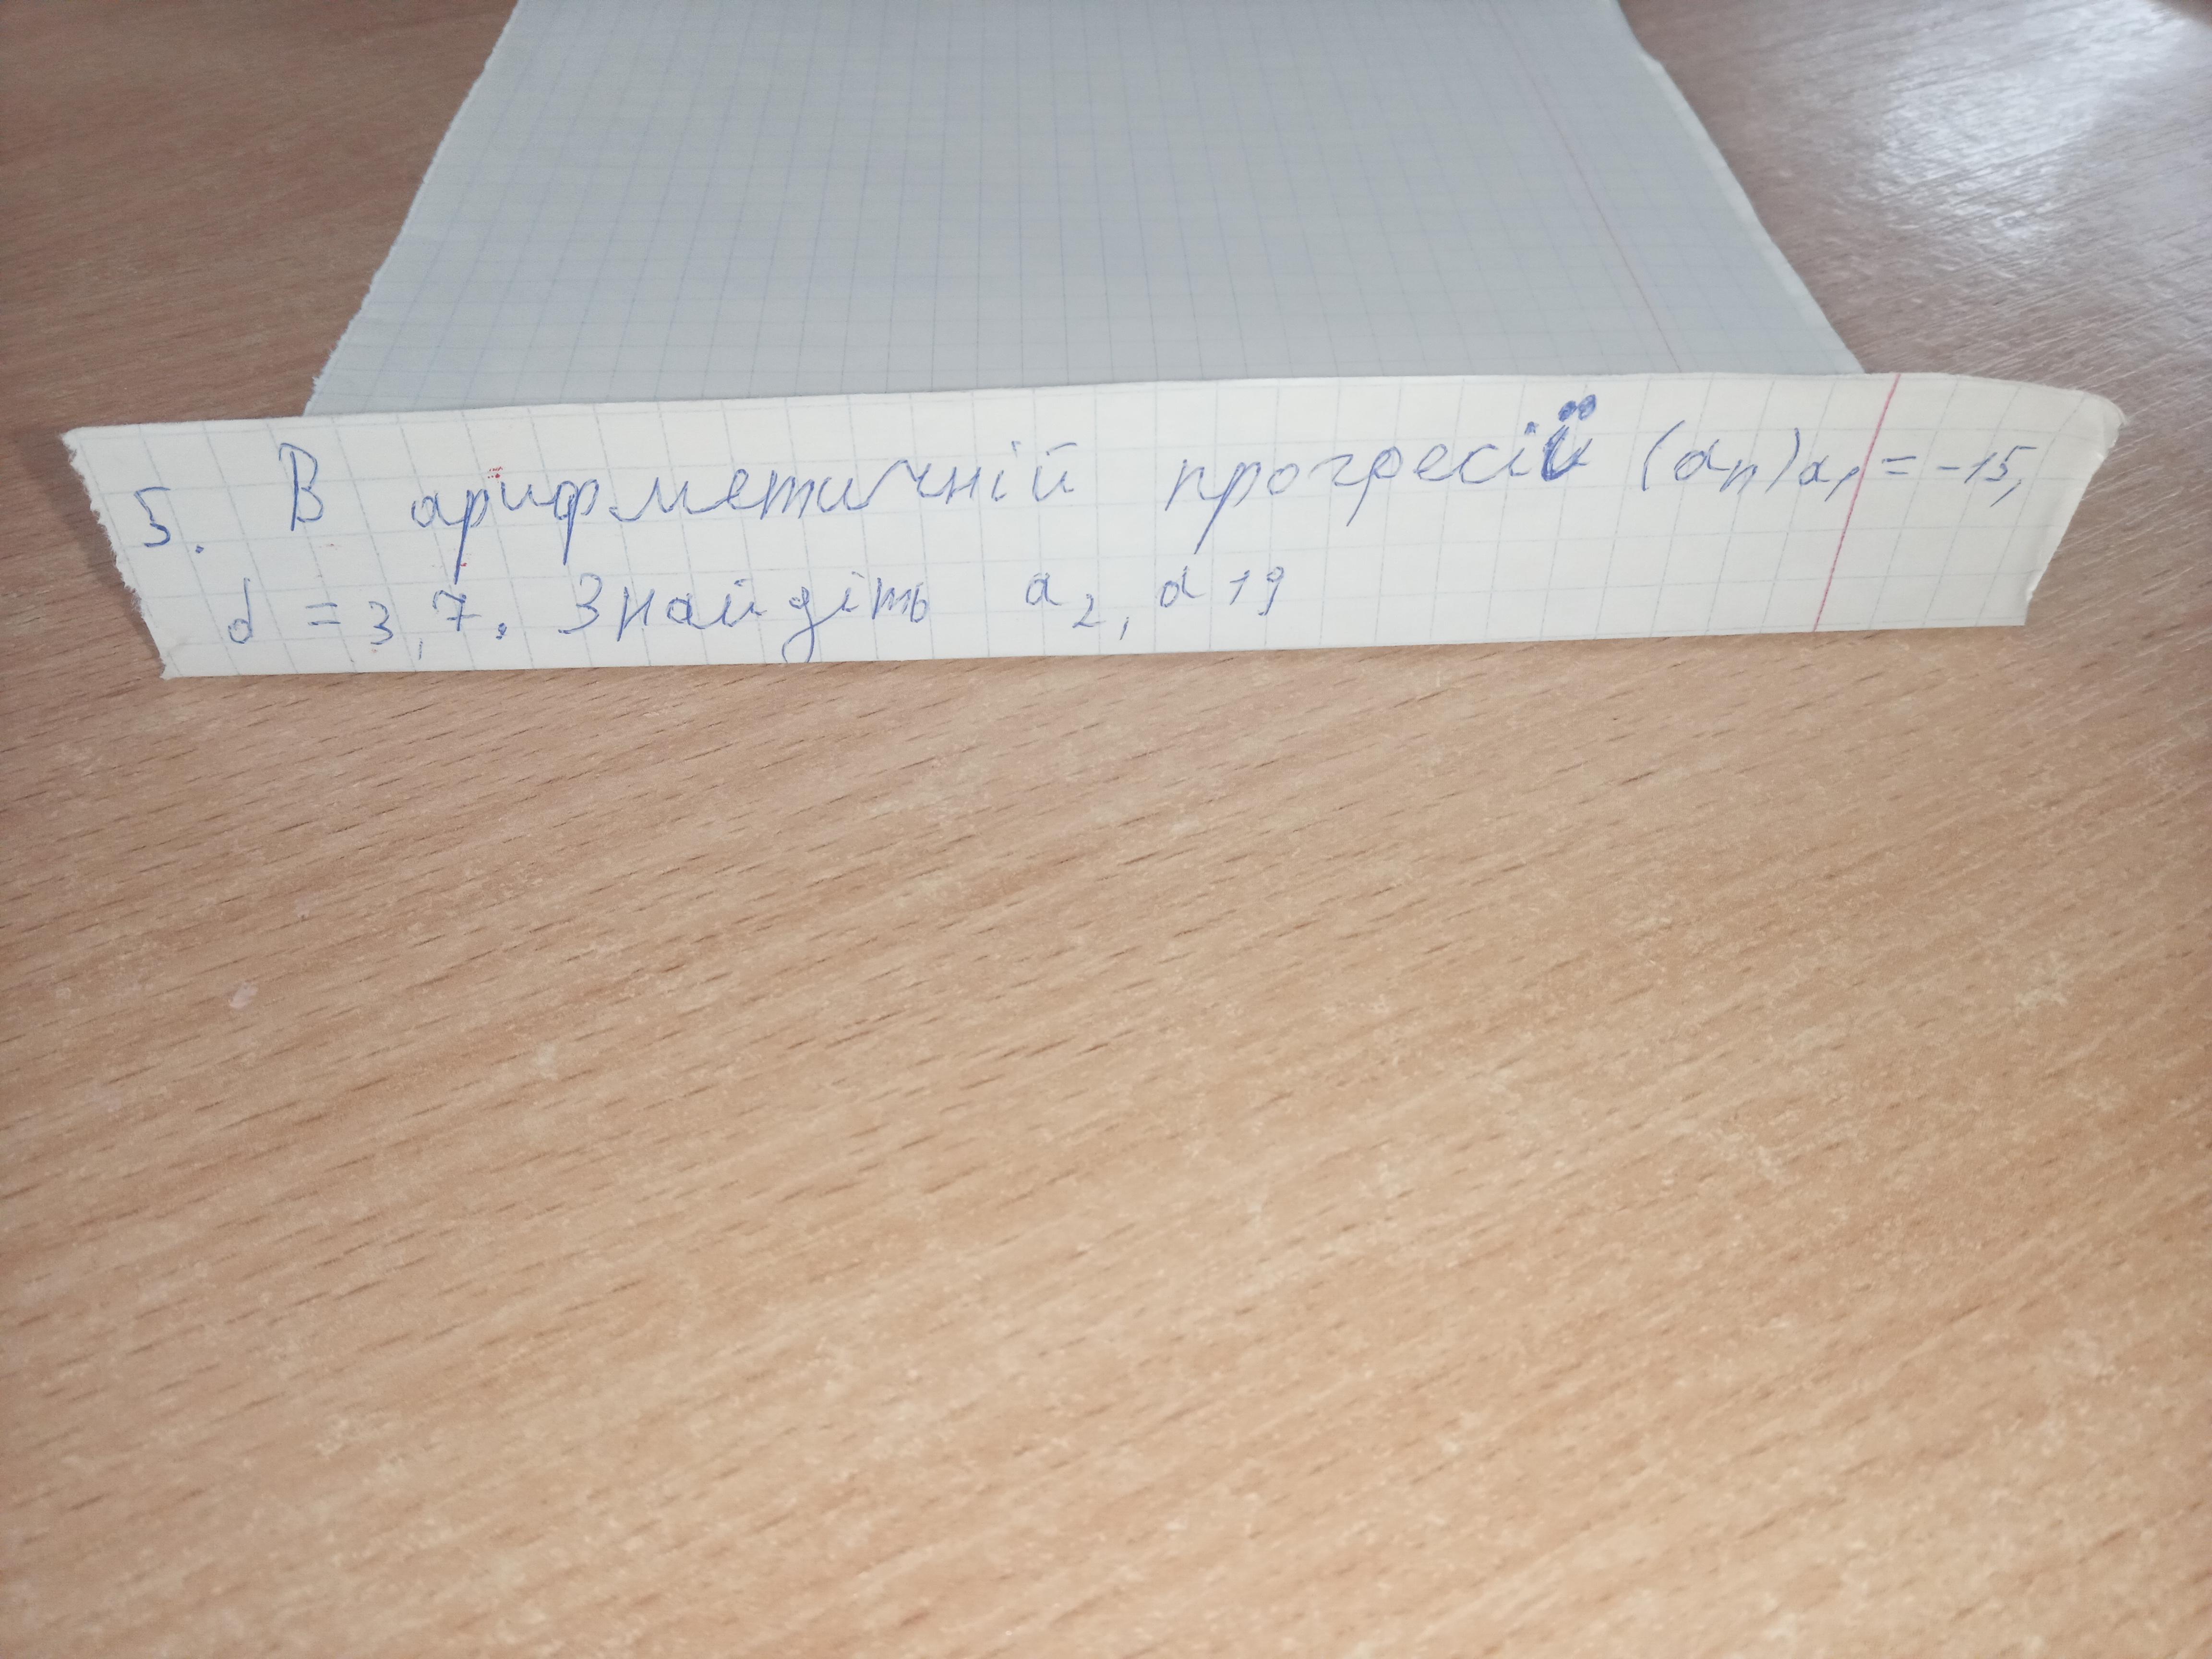 5. В арифметичній прогресії (an) a1 = -15,
d = 3,7. Знайдіть a2, a19